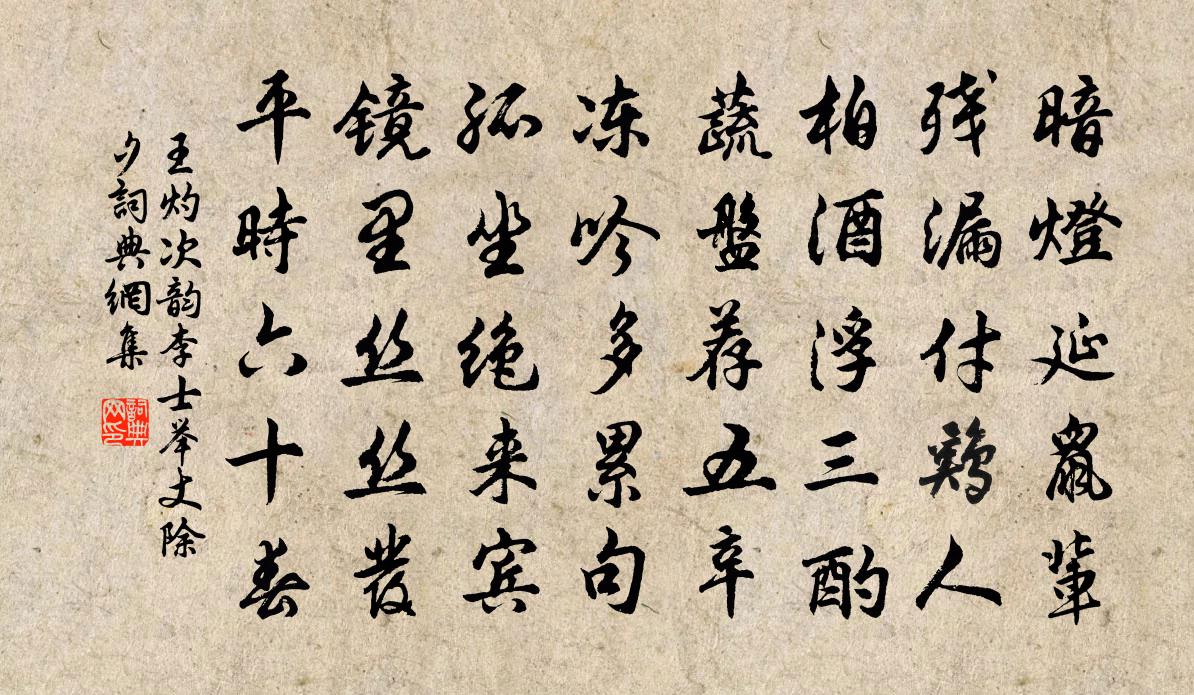 暗燈延鼠輩
残漏付鷄人
柏酒浮三酌
蔬盤荐五辛
冻吟多累句
孤坐绝来宾
镜里丝丝發
平時六十春
王灼次韵李士举丈除
夕詞典網集
詞典网印